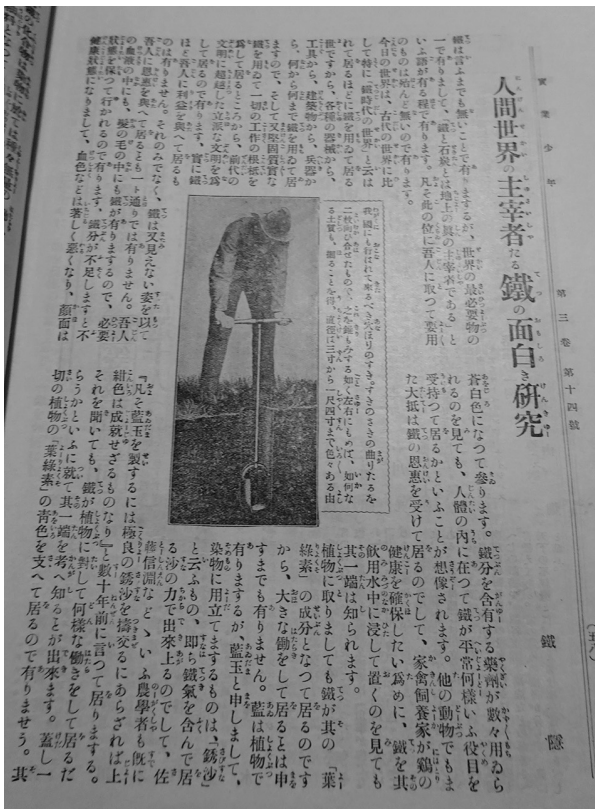 實業少年
第三卷第十四號
(五八)
人間世界の主宰者たる鐵の面白き研究
鐵隱
鐵は言ふまでも無いことで有りますが、世界の最必要物の
一で有りまして、「鐵と石炭とは地上の眞の主宰者である」と
いふ語が有る程で有ります。凡そ此の位に吾人に取つて要用
のものは殆んど無いので有ります。
今日の世界は、古代の世界に比
して特に「鐵時代の世界」と云は
れて居るほどに鐵を用ゐて居る
世ですから、各種の器械から、
工具から、建築物から、兵器か
ら、何から何まで鐵を用ゐて居
ますので、そして又堅固質實な
鐵を用ゐて一切の工作の根柢を
爲して居るところから、前代の
文明に超越した立派な文明を爲
して居るので有ります、實に鐵
ほど吾人に利益を與へて居るも
のは有りません。それのみでなく、鐵は又見えない姿を以て
吾人に恩惠を與へて居るとも一ト通りでは有りません。吾人
の血液の中にも、髮の毛の中にも鐵が有りますので、必要
狀態を保つて行かれるので有ります。鐵分が不足しますと不
健康狀態になりまして、血色などは著しく惡くなり、顏面は
我國にも行はれて來るべき穴ほりのすき。すきのさきの曲りたるを
二枚向ひ合せたもので、之を錐もみする如く左右にもめば、如何な
る土質も、掘ることを得。直徑は三寸から一尺四寸まで色々ある由
蒼白色になつて參ります。鐵分を含有する藥劑が數々用ゐら
れるのを見ても、人體の內に在つて鐵が平常何樣いふ役目を
受持つて居るかといふことが想像されます。他の動物でもま
た大抵は鐵の恩惠を受けて居るのでして、家禽飼養家が鷄の
健康を確保したい爲めに、鐵を其
飮用水中に浸して置くのを見ても
其一端は知られます。
植物に取りましても鐵が其の「葉
綠素」の成分となつて居るのです
から、大きな働をして居るとは申
すまでも有りません。藍は植物で
有りますが、藍玉と申しまして、
染物に用立てまするものは、「銹沙」
と云ふもの、即ち鐵氣を含んで居
る沙の力で出來上るのでして、佐
藤信淵などゝいふ農學者も既に
『凡そ藍玉を製するには極良の銹沙を擣交るにあらざれば上
紺色は成就せざるものなり』と數十年前に言つて居りまする。
それを聞いても、鐵が植物に對して何樣な働きをして居るだ
らうかといふに就て其一端を考へ知ることが出來ます。蓋し一
切の植物の「葉綠素」の靑色を支へて居るので有りませう。其